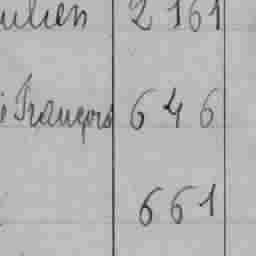 ulien 2161
François 646
661